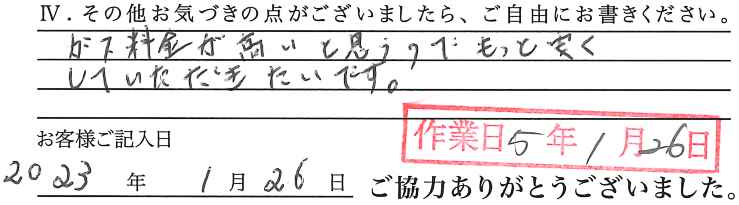 Ⅳ．その他お気づきの点がございましたら、ご自由にお書きください。
ガス料金が高いと思うのでもっと安く
していただきたいです。
お客様ご記入日
作業日5年1月26日
2023年1月26日
ご協力ありがとうございました。